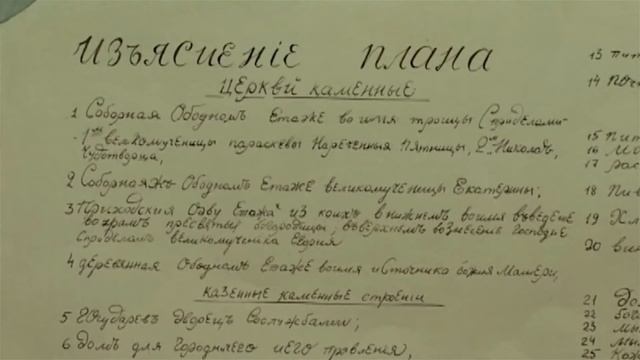 ИЗЪЯСНЕНІЕ ПЛАНА
ЦЕРКВЙ КАМЕННЫЕ
1 Соборная Ободномъ Етаже во имя троицы Спределами
1ый великомученицы параскевы Нареченныя Пятницы, 2ый Николая,
Чудотворца,
2 Соборнаяжъ Ободномъ Етаже великомученицы Екатерины;
3 Приходския Одву Етажа из коихъ внижнемъ во имя въведение
во храмъ пресвятые богородицы, въверхнемъ вознесение Господне
Спределомъ великомученика Георгия
4 деревянная Ободномъ Етаже воимя источника божия Матери,
казенные каменные строении
5 Государевъ дворецъ Сослужбами;
6 Домъ для Городничего иЕго правления,
13 пит
14 Поч
15 Пит
16
17 рас
18 Пив
19 Хл
20 вин
21
22
23
24
25